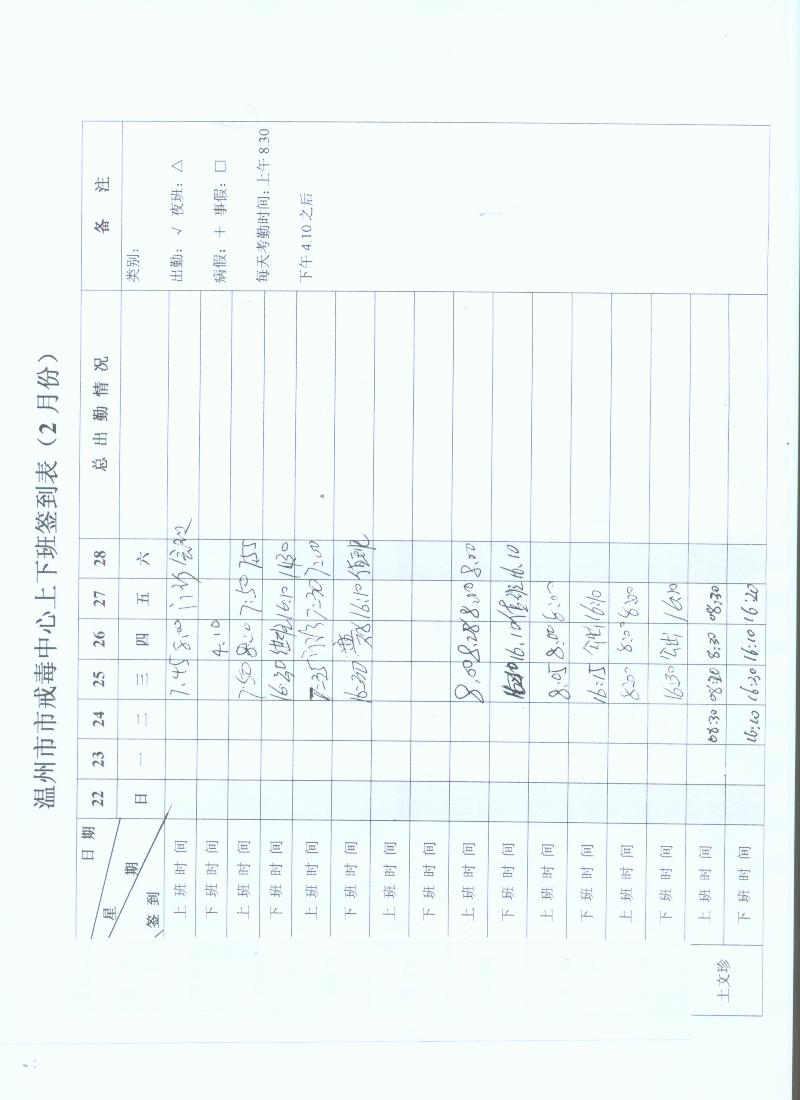 温州市市戒毒中心上下班签到表（2 月份）
日 期 22 23 24 25 26 27 28 总 出 勤 情 况 备 注
星 期 日 一 二 三 四 五 六
签 到
类别：
出勤：√ 夜班：△
病假：＋ 事假：□
每天考勤时间：上午 8.30
下午 4.10 之后
上 班 时 间 7.45 8:00
下 班 时 间 4.10
上 班 时 间 7:50 8:20 7:50 7:55
下 班 时 间 16:30 16:10
上 班 时 间 7:35 7:30 7:00
下 班 时 间 16:30 16:10
上 班 时 间
下 班 时 间
上 班 时 间 8.00 8.28 8.00
下 班 时 间 16.10 16.10
上 班 时 间 8:05 8:00 8:00
下 班 时 间 16:15 公出 16:10
上 班 时 间 8:00
下 班 时 间 16:30 公出 16:10
王文珍
上 班 时 间 08:30 08:30 8:30 08:30
下 班 时 间 16:10 16:30 16:10 16:20